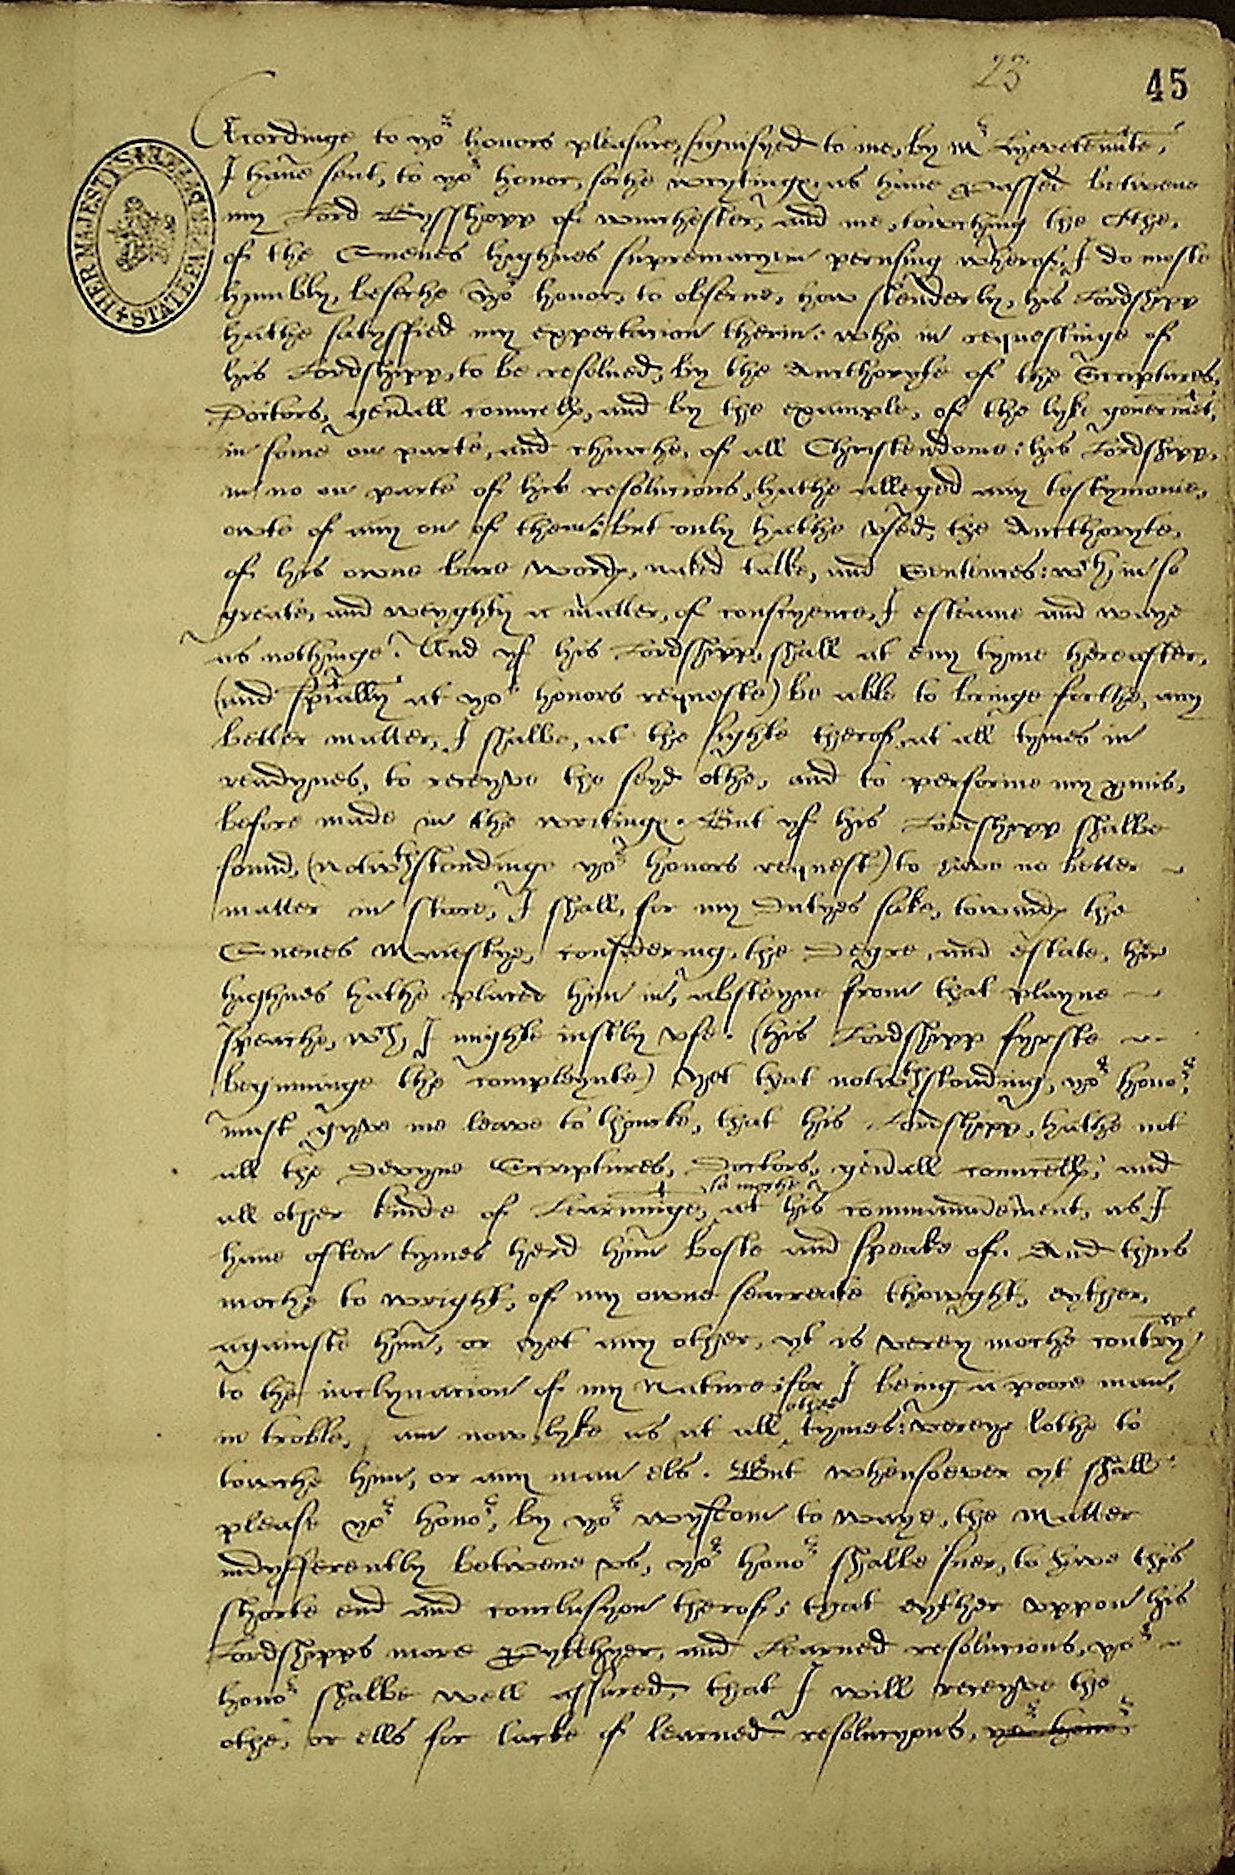 23
45
HER MAJESTY'S STATE PAPER OFFICE
Acordinge to yor honors pleasure, signifyed to me, by Mr
I have sent, to yor honor, sothe wrytinge, as have passed betwene
my Lord Bysshopp of winchester, and me, towching the Othe,
of the Quenes highnes supremacy: in perusing wherof, I do moste
humbly, beseche Yor honor, to observe, how slenderly, his Lordshipp
hathe satysffied my expectacion therin: who in requestinge of
his Lordshipp, to be resolued, by the Aucthoryte of the Scriptures,
Doctors, gen'all councells, and by the example, of the lyke gouernmet,
in some on parte, and churche, of all Christendome: his Lordshipp,
in no on parte of his resolucions, hathe alleged any testymonie,
owte of any on of them: But only hathe vsed, the Aucthoryte,
of his owne bare words, naked talke, and Sentences: wch in so
greate, and weyghty a matter, of conscyence, I esteame and waye
as nothinge. And yf his Lordshipp, shall at eny tyme hereafter,
(and sp'ially at yor honors requeste) be able to bringe forthe, any
better matter, I shalbe, at the sighte therof, at all tymes in
readynes, to receyve the seyd othe, and to performe my p'mis,
before made in the writinge. But yf his Lordshipp shalbe
found, (notwthstandinge yor honors request) to have no better
matter in stoore, I shall, for my Dutyes sake, towards the
Quenes Maiestye, considering, the Degre, and estate, her
highnes hathe placed him in, absteyne from that playne
speache, wch, I mighte iustly vse. (his Lordshipp fyrste
beginninge the compleynte) Yet that notwthstanding, yor honor,
must gyve me leave to thincke, that his Lordshipp, hathe not
all the Devyne Scriptures, Doctors, gen'all councells, and
all other kinde of Learninge, so moche at his commaundement, as I
have often tymes herd him boste and speake of. And thus
moche to wright, of my owne seacreate thowght, eyther,
againste him, or yet any other, yt is verey moche contrary
to the inclynacion of my Nature: for I being a poore man,
in troble, am now, lyke as at all other tymes: vereye lothe to
towche him, or any man els. But whensoever yt shall
please yor honor, by yor wysdom to waye, the Matter
indyfferently betwene vs, yor honor shalbe suer, to have this
shorte end and conclusyon therof: that eyther vppon his
Lordshipps more Pytthyer, and Learned resolucions, yor
honor shalbe well assured, that I will receyve the
othe, or ells for lacke of learned resolucyons, yor honor